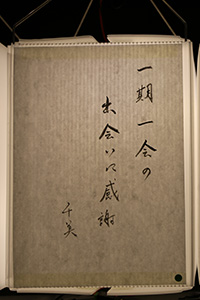 一期一会の
出会いに感謝
千美